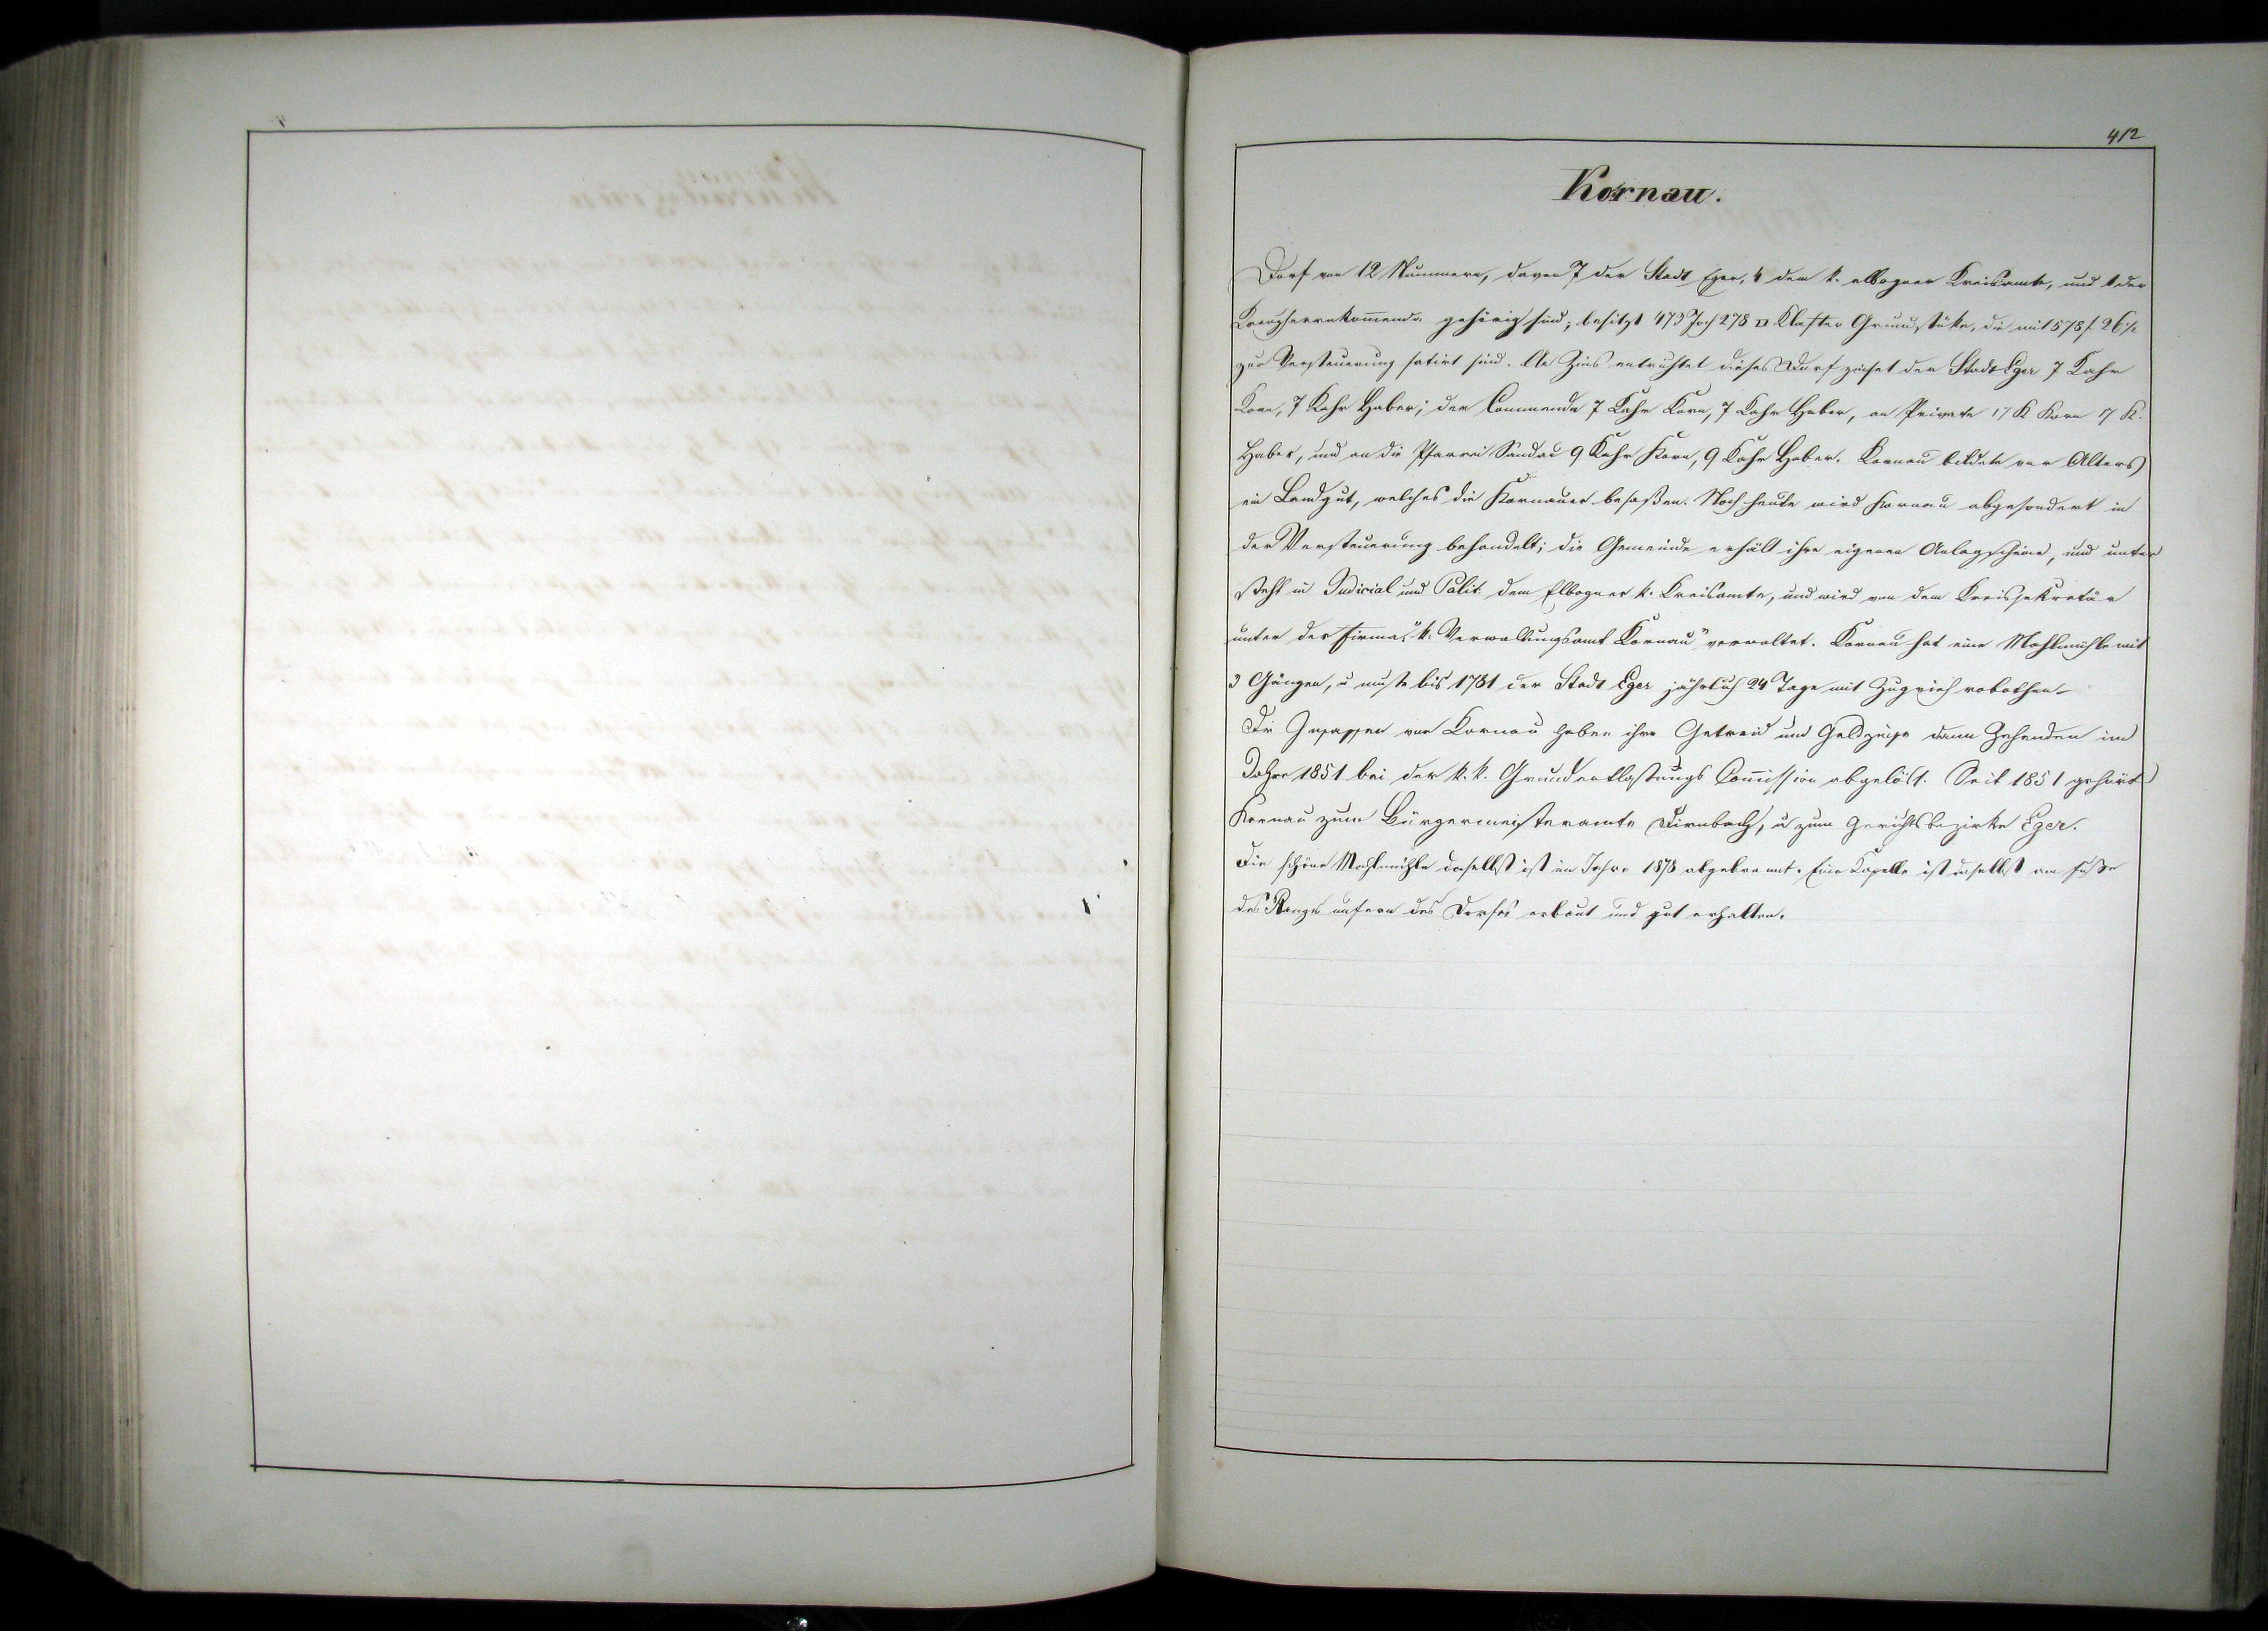 412
Kornau.
Dorf von 12 Nummern, davon 7 der Stadt Eger, 4 dem k. elbogner Kreisamte, und 1 der
Kreuzherrnkom̄enda gehörig sind; besitzt 473 Joch 278 □ Klafter Grundstüke, die mit 578 f 26 x
zur Versteuerung fatirt sind. An Zins entrichtet dieses Dorf zinset der Stadt Eger 7 Kahr
Korn, 7 Kahr Haber; der Commenda 7 Kahr Korn, 7 Kahr Haber, an Private 17 K Korn 17 K.
Haber, und an die Pfarrei Sandau 9 Kahr Korn, 9 Kahr Haber. Kornau bildete vor Alters
ein Landgut, welches die Kornauer besaßen. Noch heute wird Kornau abgesondert in
der Versteuerung behandelt; die Gemeinde erhält ihre eigenen Anlagscheine, und unter
steht in Judicial und Polit. dem Elbogner k. Kreisamte, und wird von dem Kreissekretär
unter der Firma: "k. Verwaltungsamt Kornau" verwaltet. Kornau hat eine Mahlmühle mit
3 Gängen, u muste bis 1781 der Stadt Eger jährlich 24 Tage mit Zugvieh robothen.
Die Insassen von Kornau haben ihre Getreid und Geldzinse dann Zehenden im
Jahre 1851 bei der k. k. Grundentlastungs Com̄ission abgelöst. Seit 1851 gehört
Kornau zum Bürgermeisteramte Dirnbach, u zum Gerichtsbezirke Eger.
Die schöne Mahlmühle daselbst ist im Jahre 1878 abgebrannt. Eine Kapelle ist daselbst am Fuße
des unfern des Dorfes erbaut und gut erhalten.